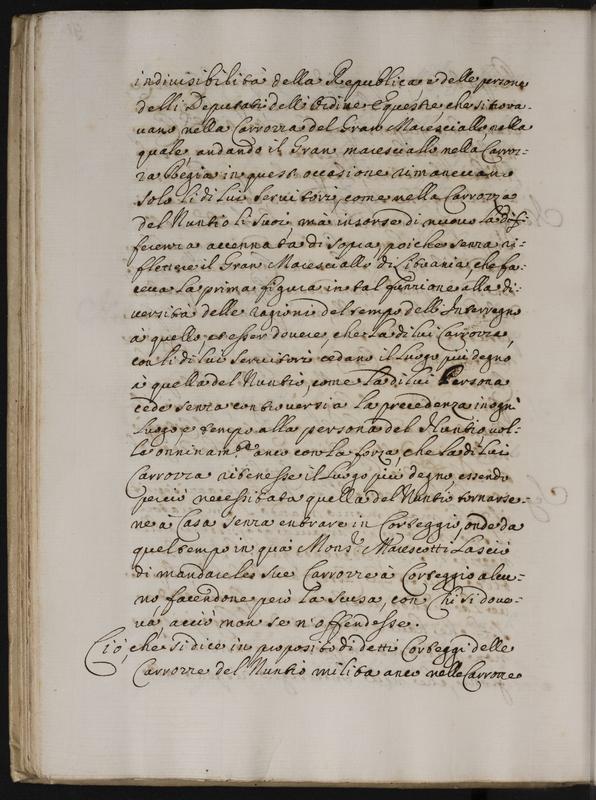 indiuisibilità della Republica, e delle persone
delli Deputati dell'Ordine Equestre, che si troua-
uano nella Carrozza del Gran Maresciallo nella
quale, andando il Gran maresciallo nella Carroz-
za Regia in quest'occasione rimaneuano
solo li di lui seruitori, come nella Carrozza
del Nuntio li suoi, mà insorse di nuouo la dif-
ferenza accennata di sopra, poiche senza ri-
flettere il Gran Maresciallo di Lituania, che fa-
ceua la prima figura in tal funzione alla di-
uersità delle Ragioni del tempo dell'Interregno
à quello, et esser douere, che la di lui Carrozza,
con li di lui seruitori cedano il luogo più degno
à quella del Nuntio, come la di lui Persona
cede senza controuersia la precedenza in ogni
luogo, e tempo alla persona del Nuntio, vol-
le onninam.te anco con la forza, che la di lui
Carrozza ritenesse il luogo più degno, essendo
perciò necessitata quella del Nuntio tornarse-
ne à Casa senza entrare in Corteggio, onde da
quel tempo in quà Mons.r Marescotti lasciò
di mandare le sue Carrozze à Corteggio alcu-
no facendone però la scusa, con chi si doue-
ua, acciò non se n'offendesse.
Ciò, che si dice in proposito di detti Corteggi delle
Carrozze del Nuntio milita anco nelle Carrozze